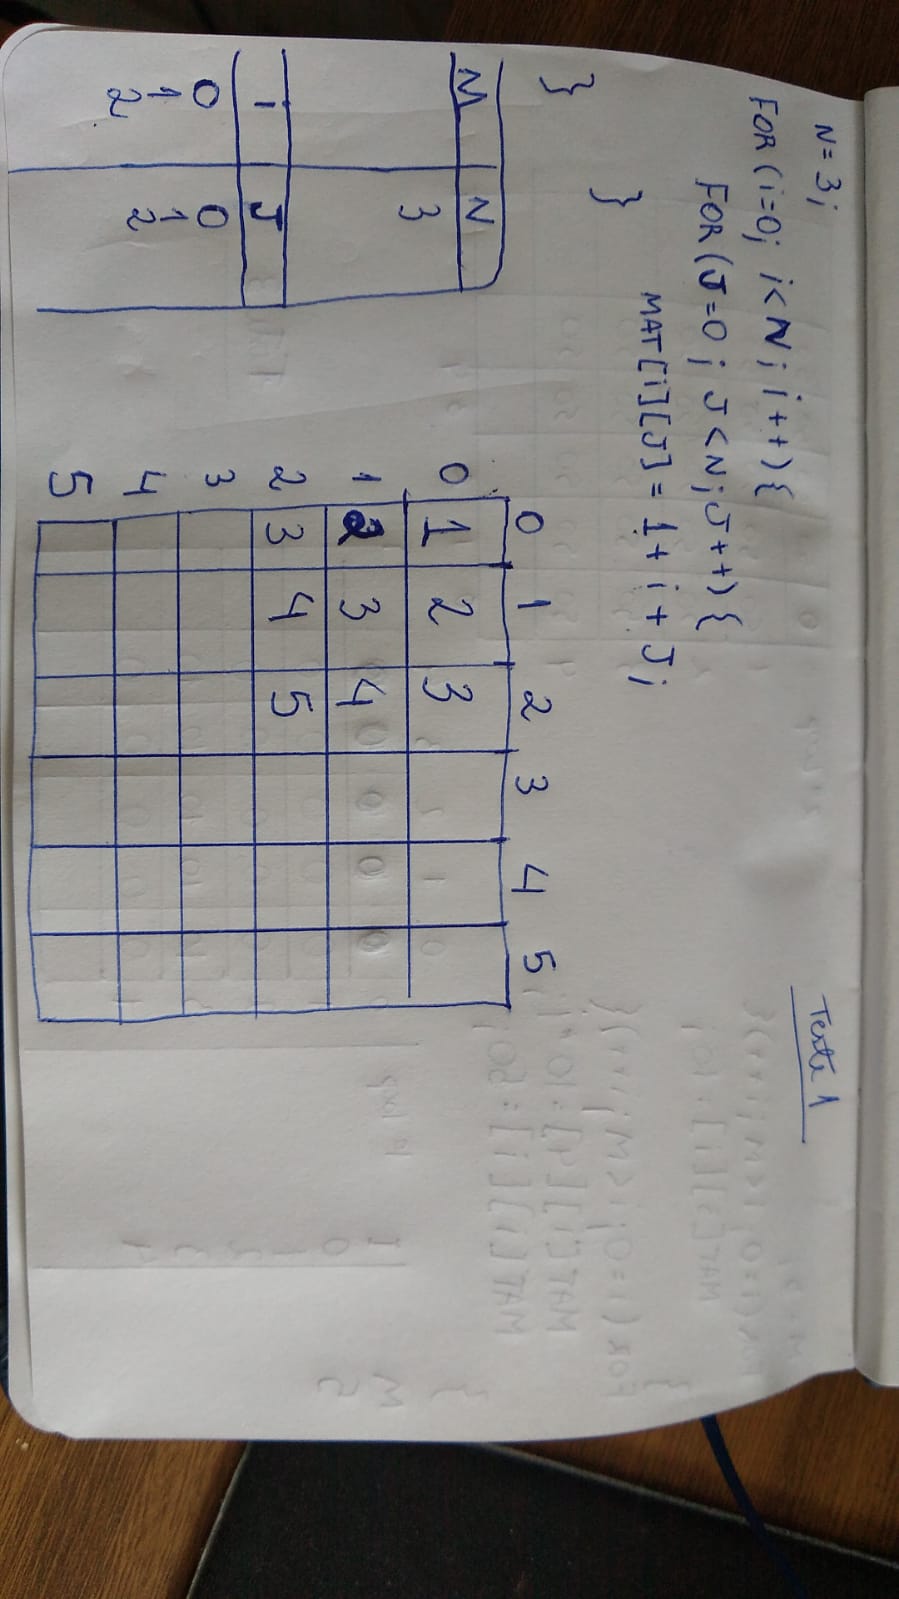 Teste 1
N=3;
FOR(i=0; i<N; i++){
FOR(J=0; J<N; J++){
MAT[i][J]=1+i+J;
}
}
M N
3
i J
0 0
1 1
2 2
0 1 2 3 4 5
0 1 2 3
1 2 3 4
2 3 4 5
3
4
5